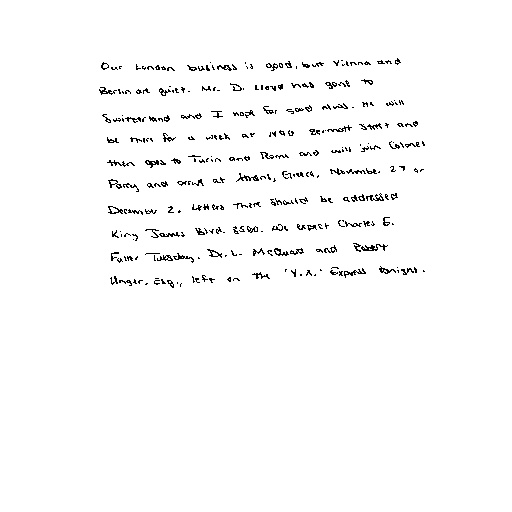 Our London business is good, but Vienna and
Berlin are quiet. Mr. D. Lloyd has gone to
Switzerland and I hope for good news. He will
be there for a week at 1496 Zermott Street and
then goes to Turin and Rome and will join Colonel
Parry and arrive at Athens, Greece, November 27 or
December 2. Letters there should be addressed
King James Blvd. 3580. We expect Charles E.
Fuller Tuesday. Dr. L. McQuaid and Robert
Unger, Esq., left on the "Y.X." Express tonight.